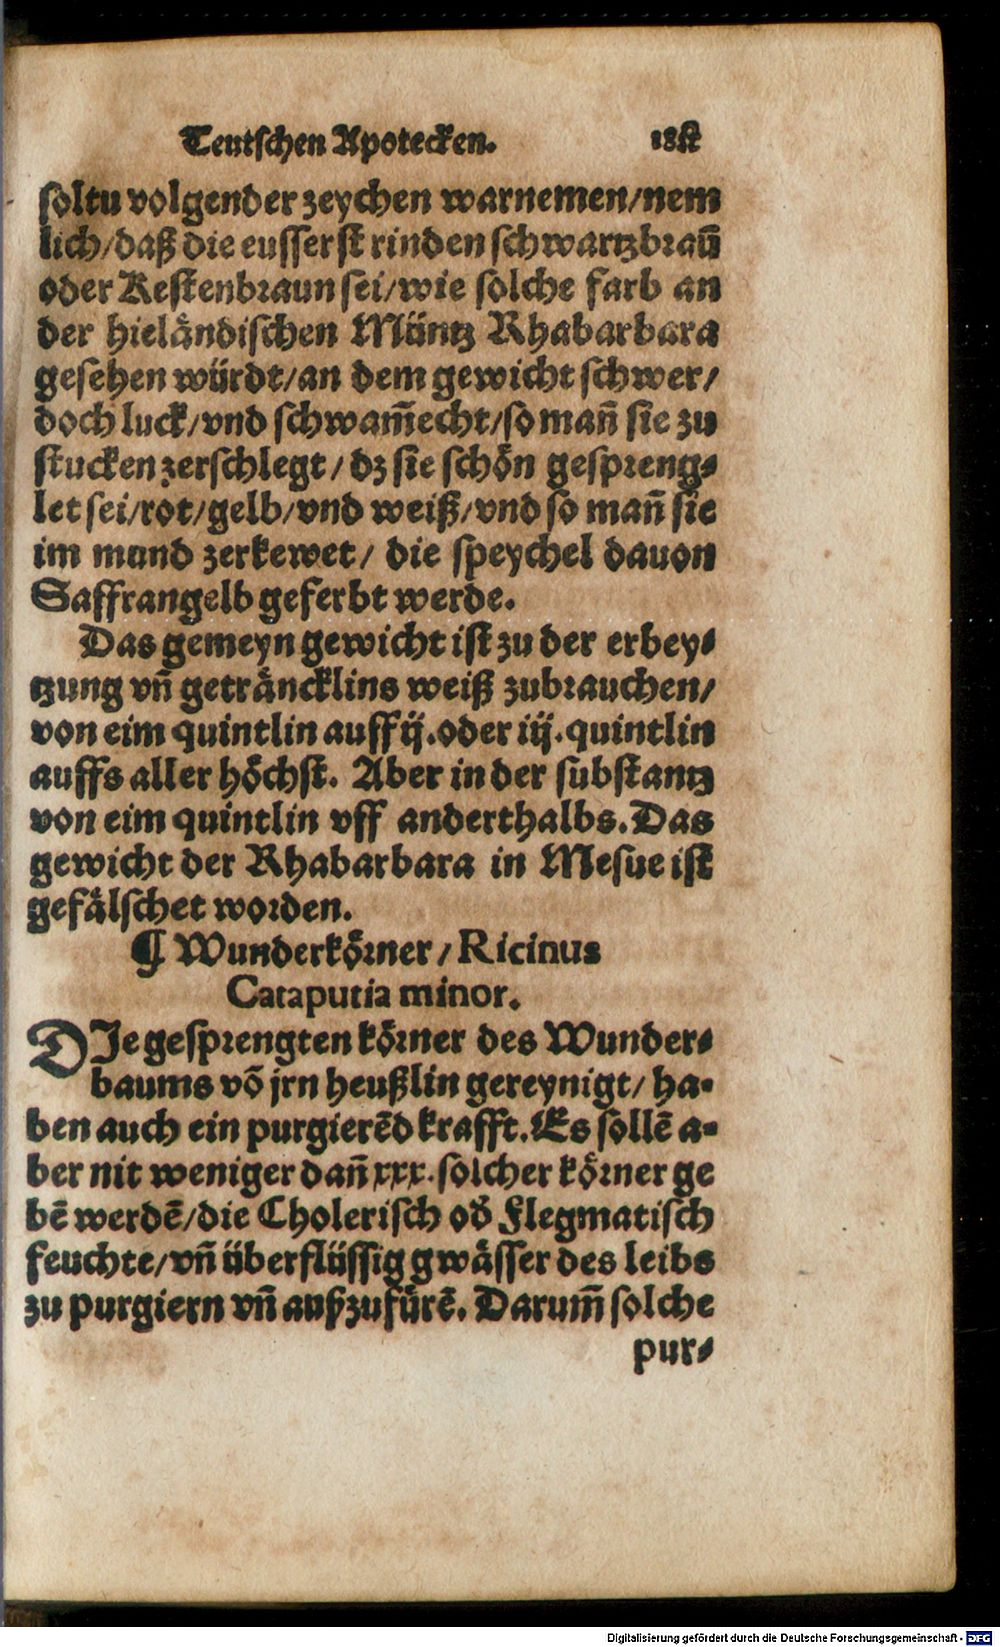 Teutschen Apotecken. 18st
soltu volgender zeychen warnemen/nem
lich/daß die eusserst rinden schwartzbraun̄
oder Kestenbraun sei/wie solche farb an
der hieländischen Müntz Rhabarbara
gesehen würdt/an dem gewicht schwer/
doch luck/vnd schwam̄echt/so man̄ sie zu
stucken zerschlegt/dz sie schön gespreng⸗
let sei/rot/gelb/vnd weiß/vnd so man̄ sie
im mund zerkewet/ die speychel dauon
Saffrangelb geferbt werde.
Das gemeyn gewicht ist zu der erbey⸗
tzung vn̄ geträncklins weiß zubrauchen/
von eim quintlin auff ij. oder iij. quintlin
auffs aller höchst. Aber in der substantz
von eim quintlin vff anderthalbs. Das
gewicht der Rhabarbara in Mesue ist
gefälschet worden.
¶ Wunderkörner/Ricinus
Cataputia minor.
DIe gesprengten körner des Wunder⸗
baums vō jrn heußlin gereynigt/ ha⸗
ben auch ein purgierēd krafft. Es sollē a⸗
ber nit weniger dan̄ xxx. solcher körner ge
bē werdē/die Cholerisch od̕ Flegmatisch
feuchte/vn̄ überflüssig gwässer des leibs
zu purgiern vn̄ außzufürē. Darum̄ solche
pur⸗
Digitalisierung gefördert durch die Deutsche Forschungsgemeinschaft - DFG